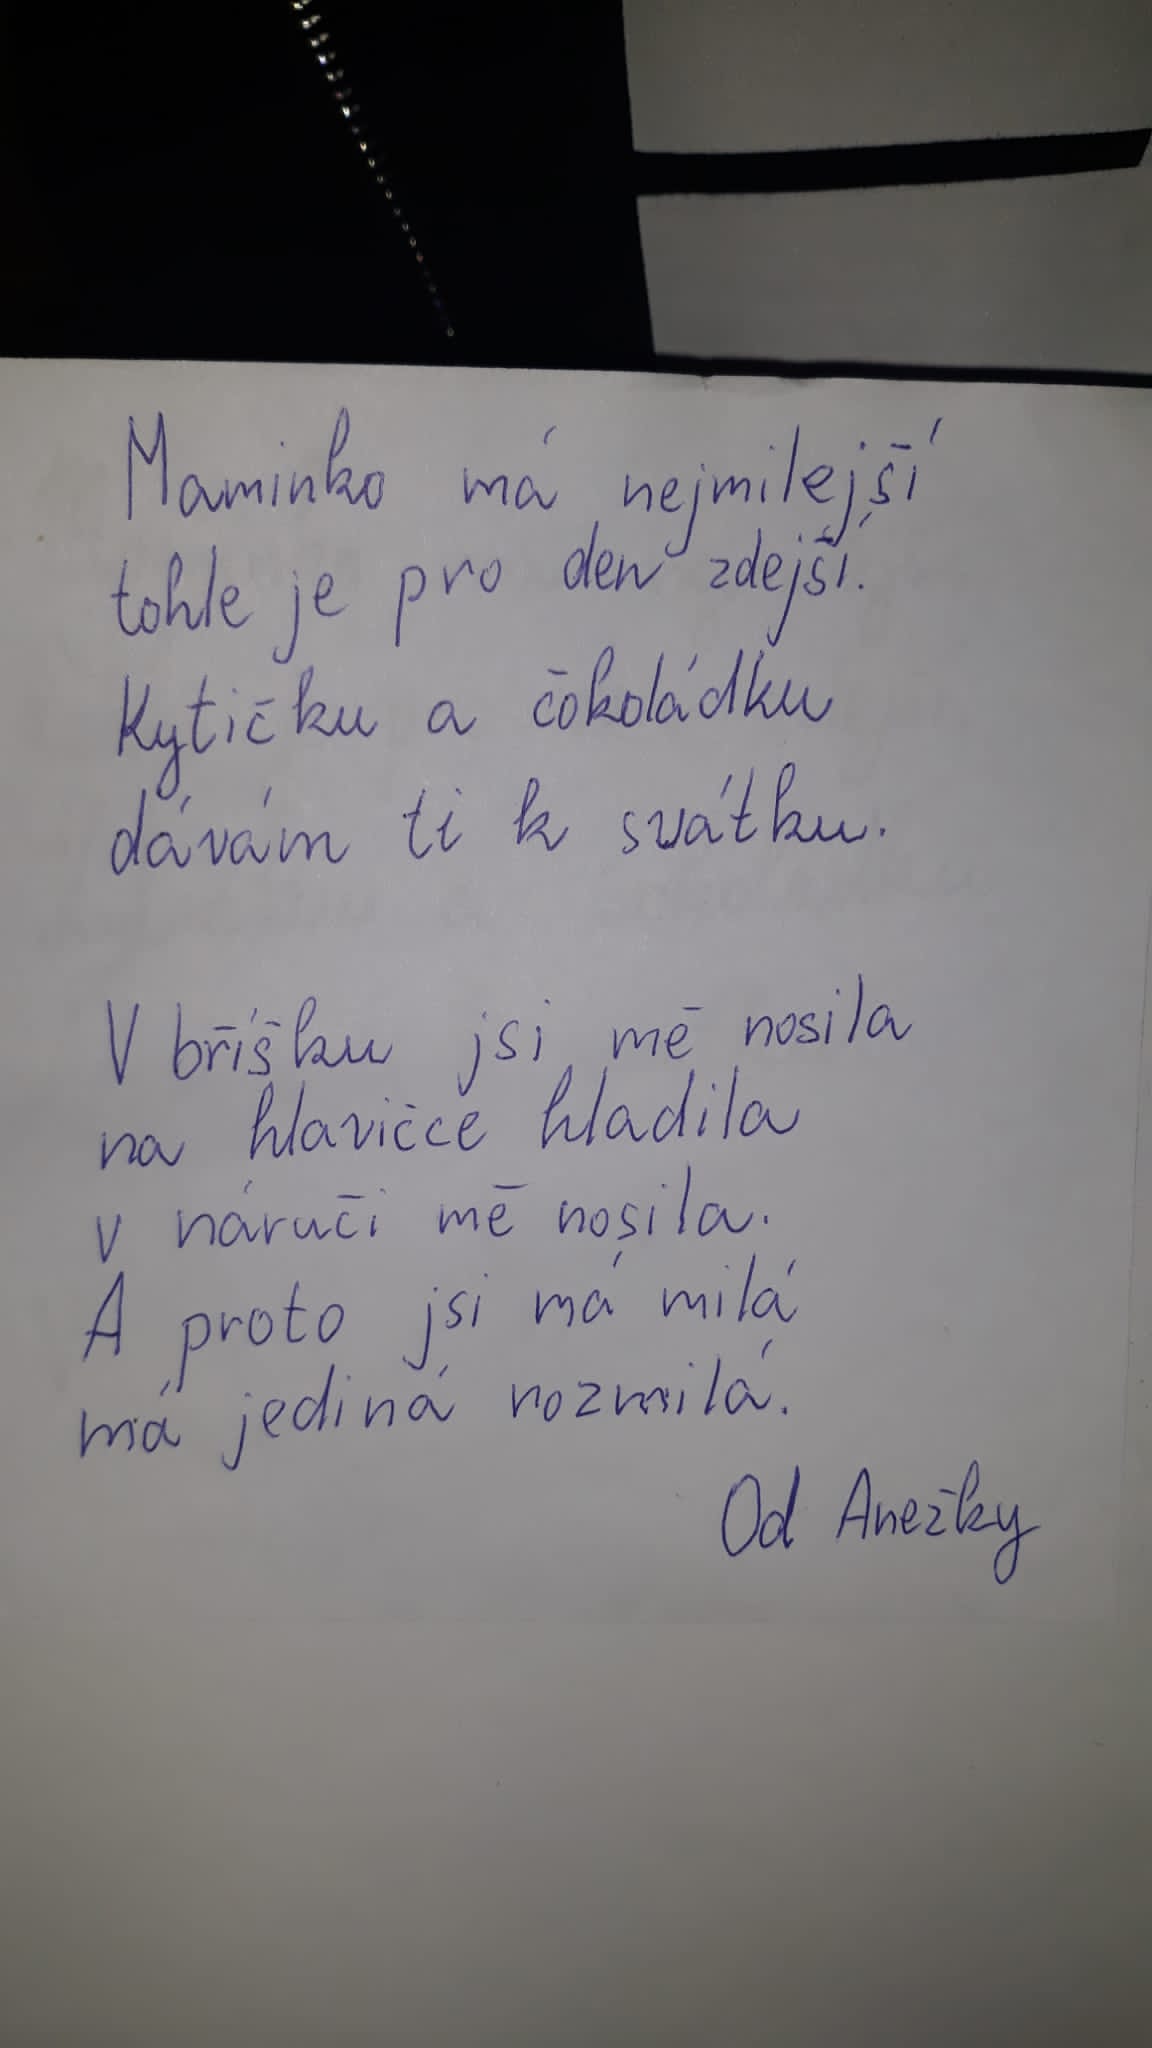 Maminko má nejmilejší
tohle je pro den zdejší.
Kytičku a čokoládku
dávám ti k svátku.
V bříšku jsi mě nosila
na hlavičce hladila
v náručí mě nosila.
A proto jsi má milá
má jediná rozmilá.
Od Anežky